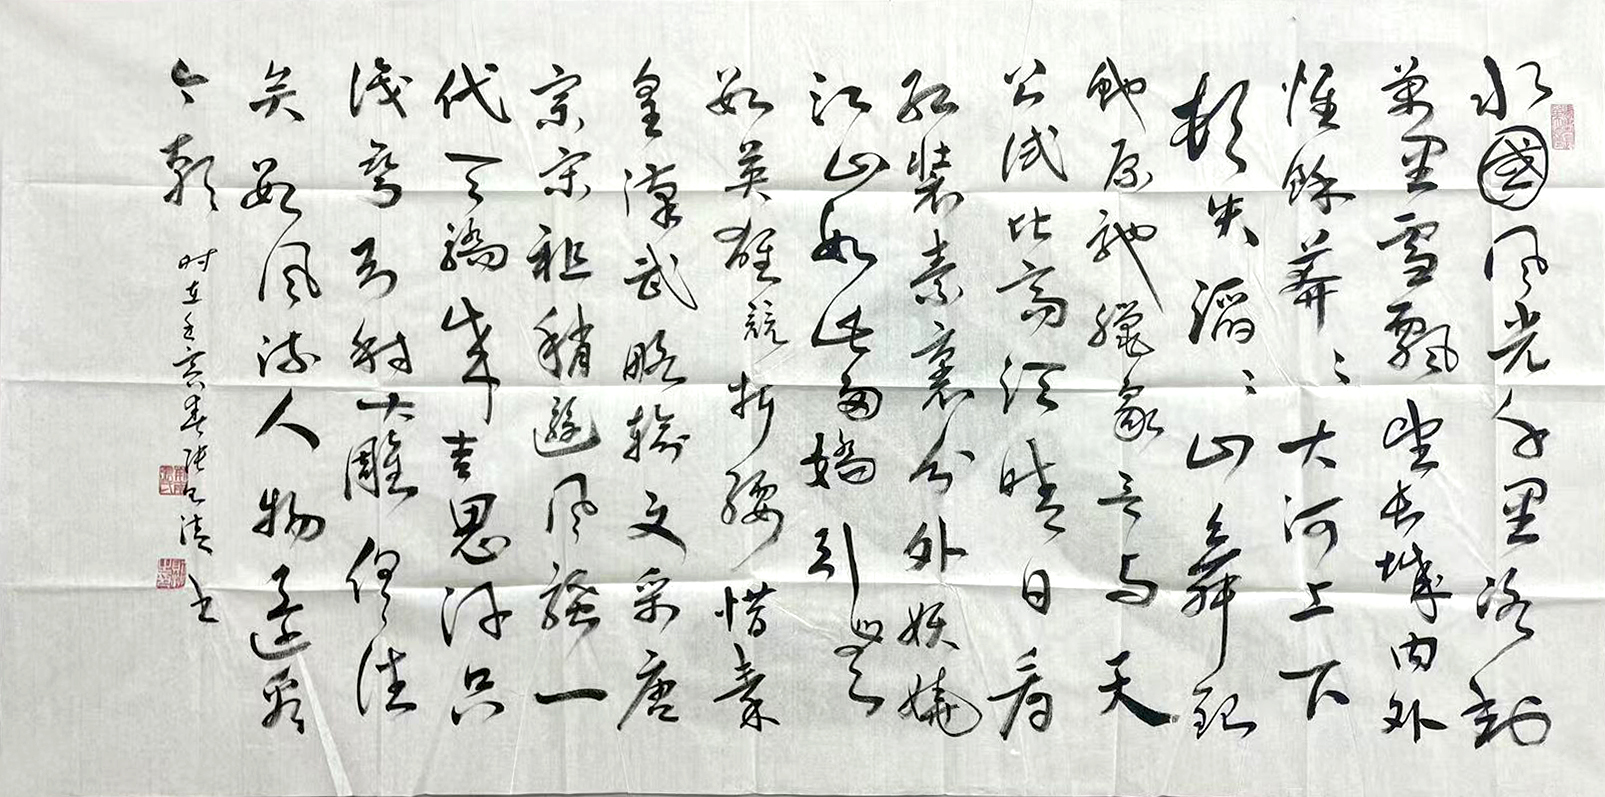 北國风光千里冰封
萬里雪飄望长城内外
惟餘莽〻大河上下
頓失滔〻山舞銀
蛇原馳蠟象欲与天
公试比高须晴日看
红装素裹分外妖娆
江山如此多嬌引無
数英雄競折腰惜秦
皇漢武略输文采唐
宗宋祖稍遜风骚一
代天驕成吉思汗只
識彎弓射大雕俱往
矣数风流人物还看
今朝 时在壬寅春张 书